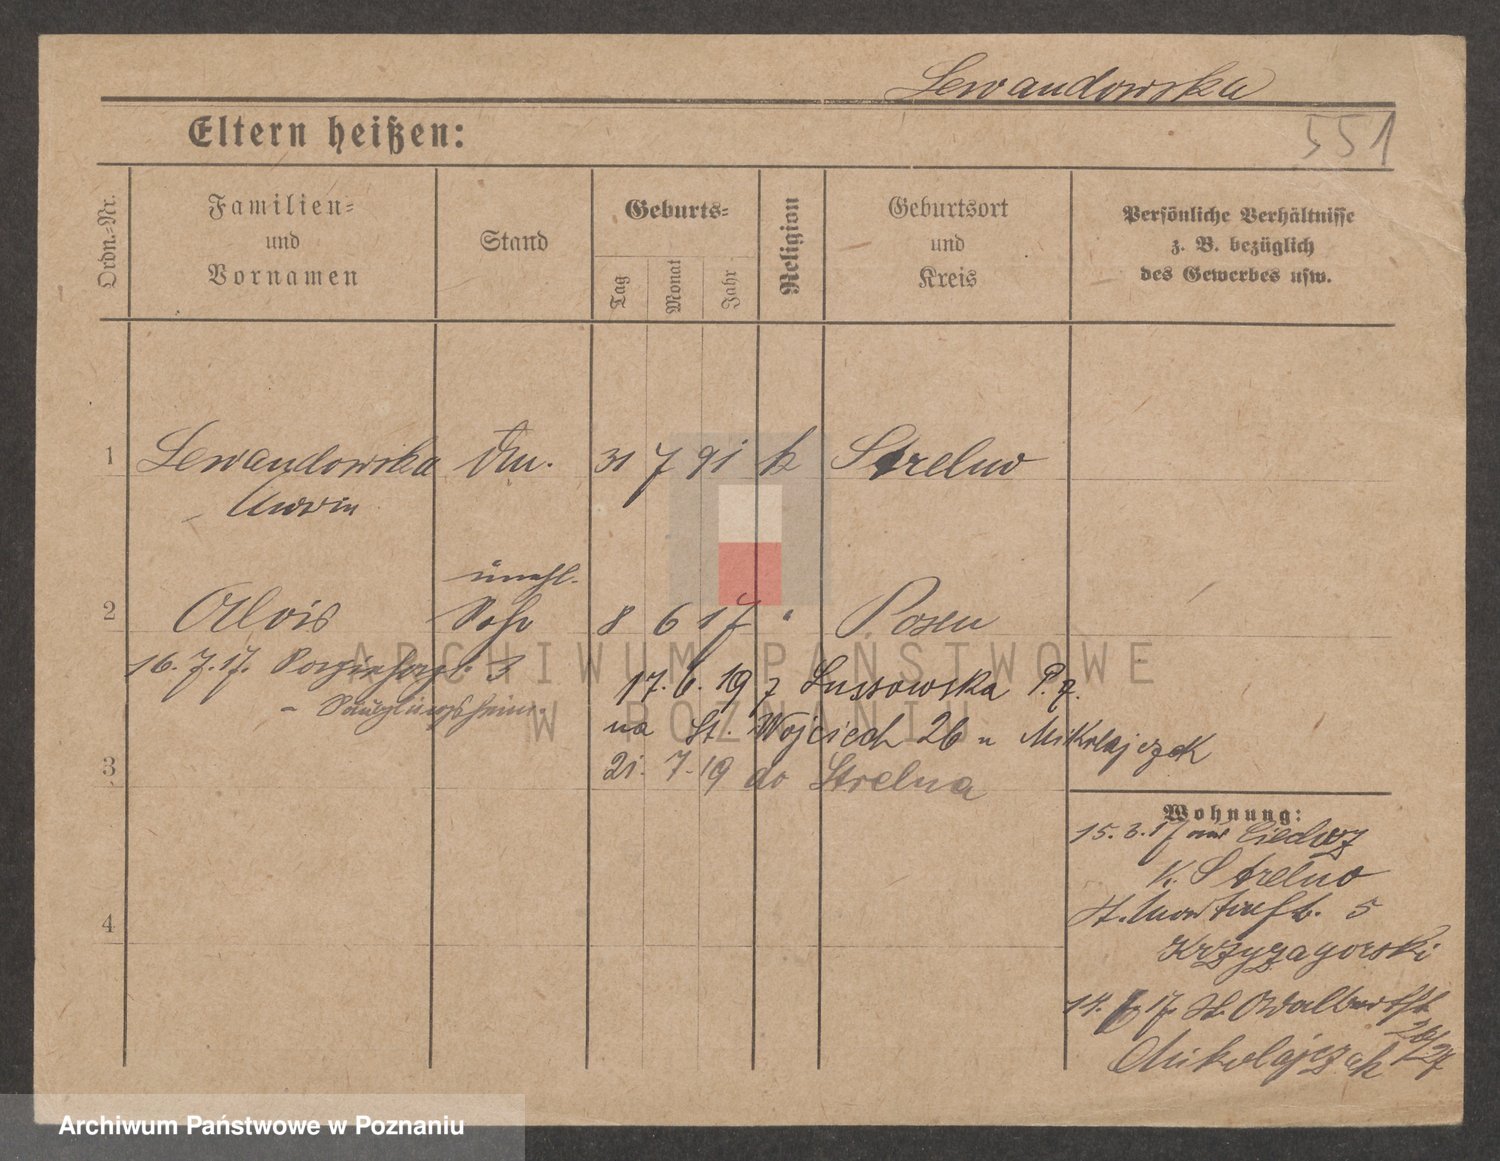 Lewandowska
Eltern heißen:
551
Ordn.-Nr.
Familien-
und
Vornamen
Stand
Geburts-
Tag
Monat
Jahr
Religion
Geburtsort
und
Kreis
Persönliche Verhältnisse
z. B. bezüglich
des Gewerbes usw.
1 Lewandowska 31 7 91 k Strelno
unehl.
2 Alois Sohn 8 6 17 " Posen
16. 7. 17. 3
Säuglingsheim.
17. 6. 19 z Lussowska P. z.
na St. Wojciech 26 u Mikołajczak
3 21. 7. 19 do Strelna
Wohnung:
15. 3. 17 aus
K. Strelno
St. Martinstr. 5
Krzyzagorski
4
14. 6 17. St. Adalbertstr
26/27
Mikolajczak
ARCHIWUM PAŃSTWOWE
W POZNANIU
Archiwum Państwowe w Poznaniu